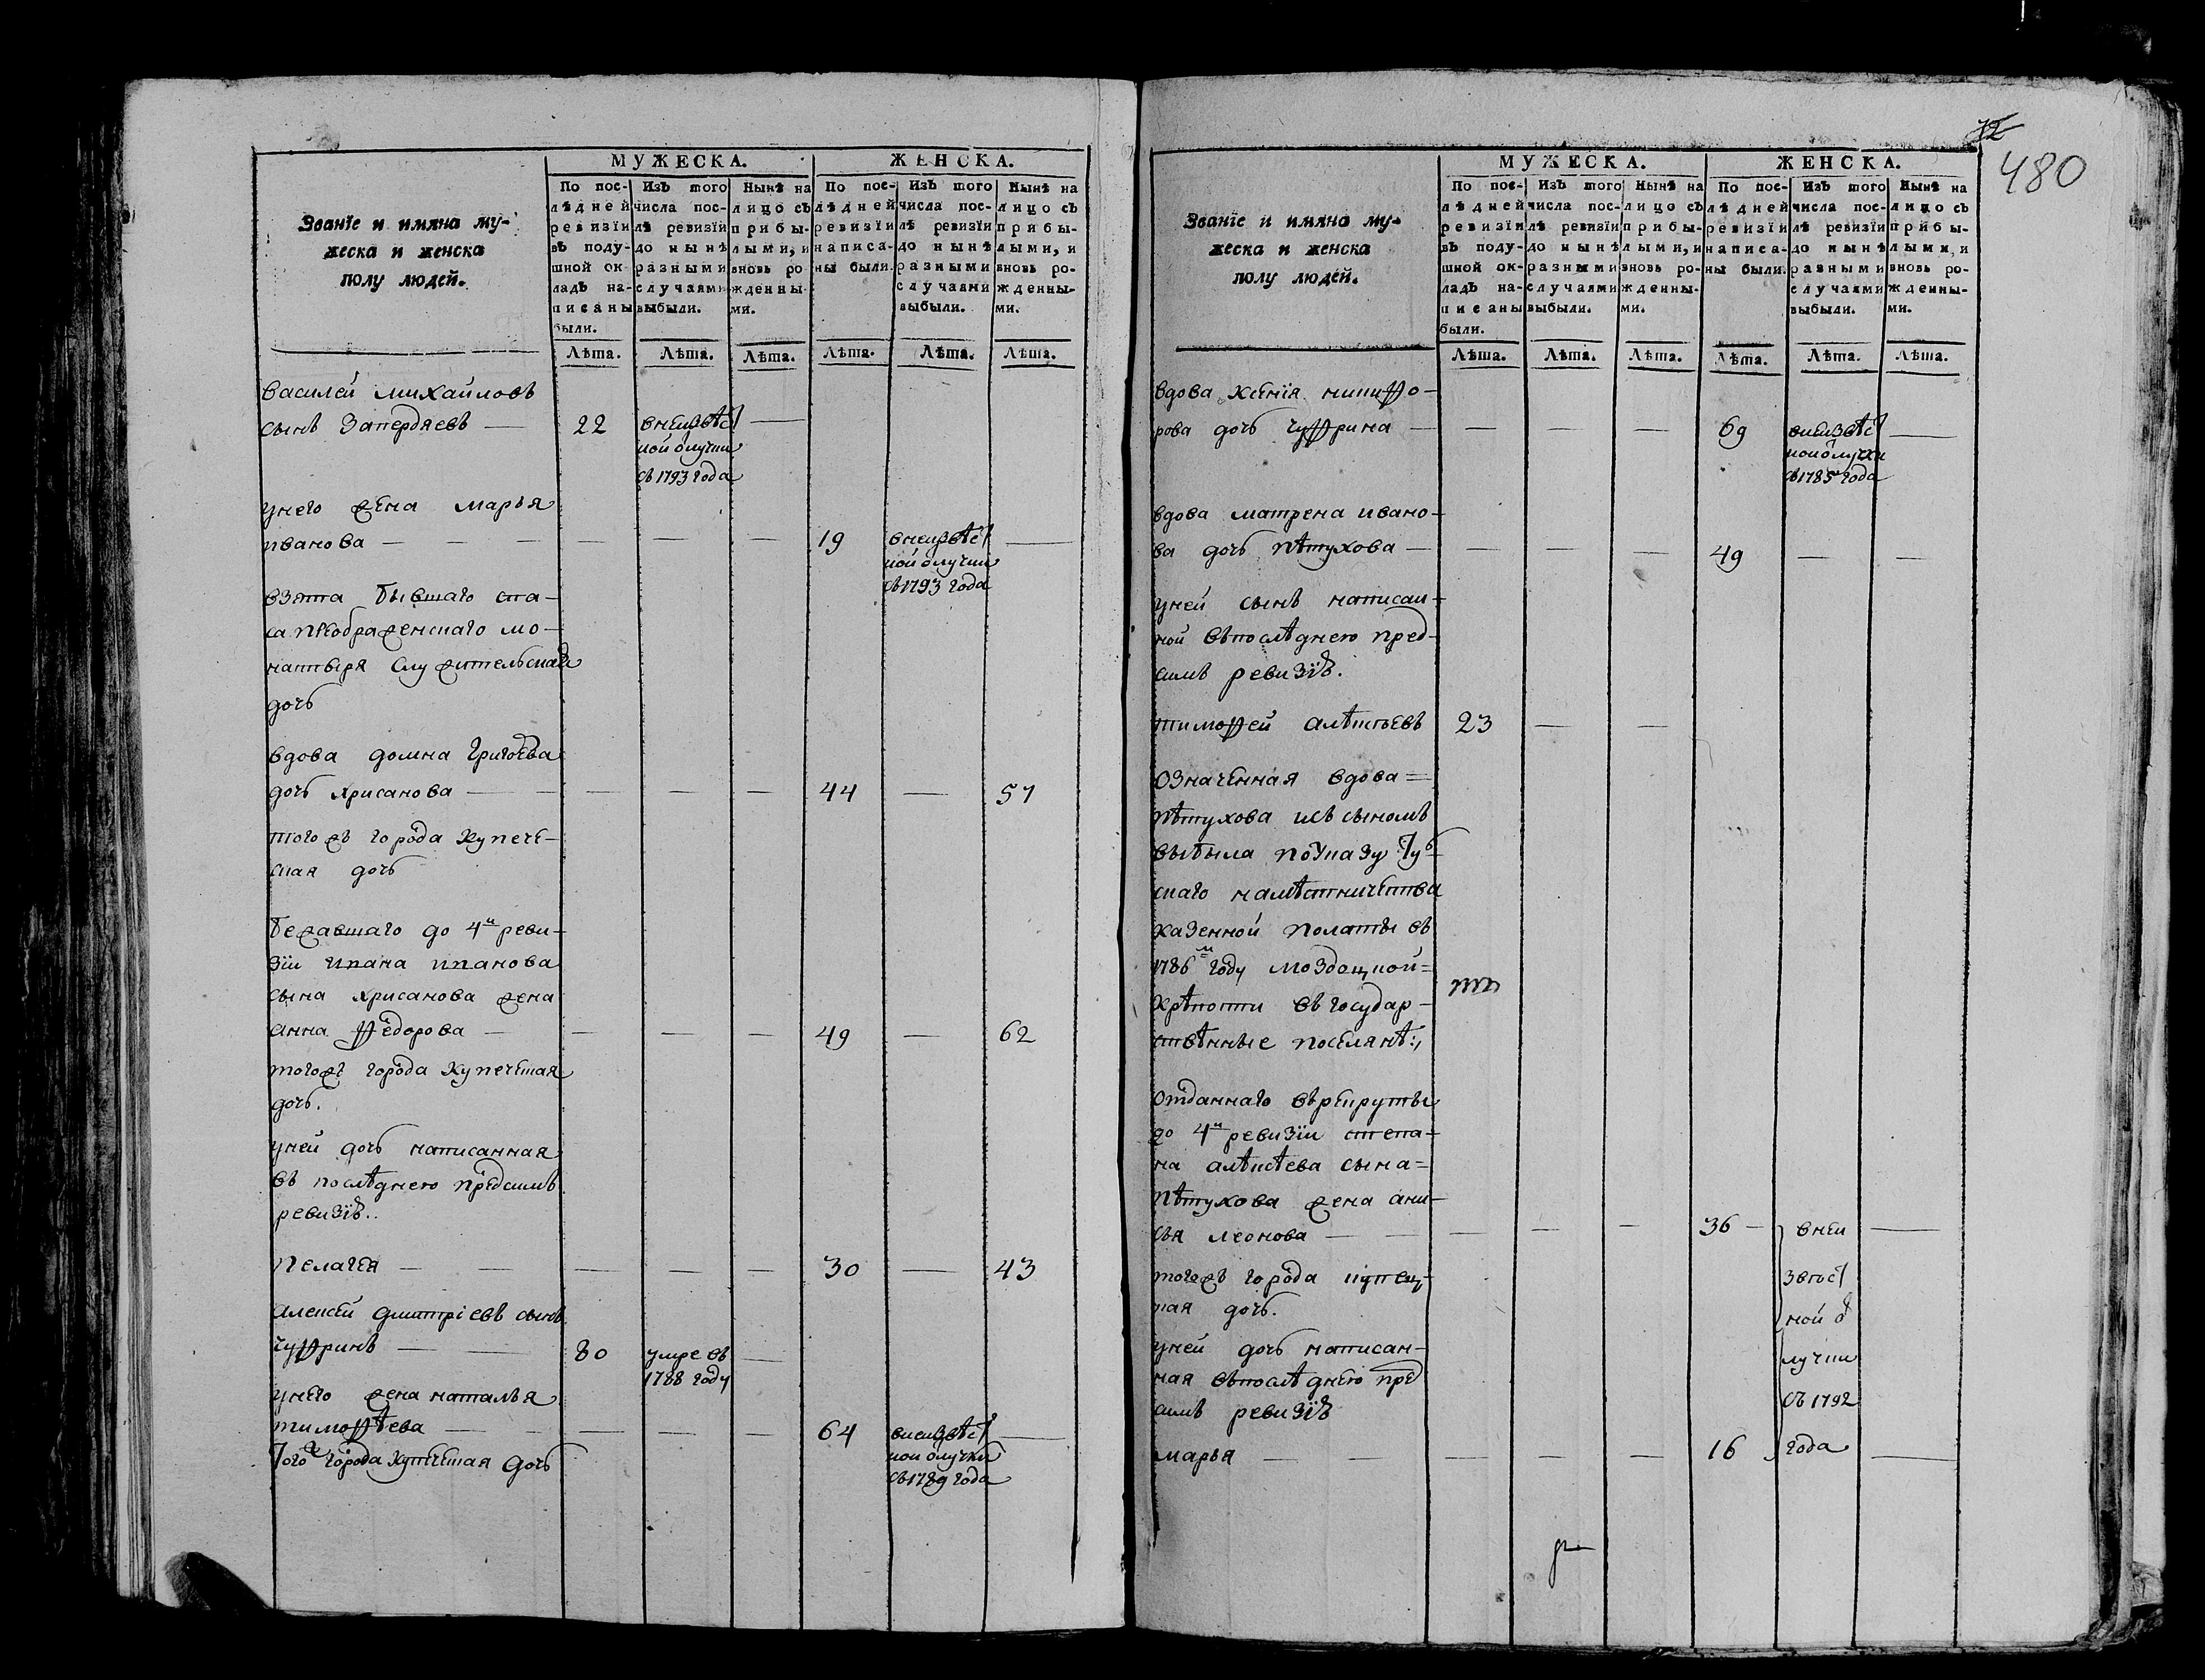 МУЖЕСКА. ЖЕНСКА.
Званїе и имяна му-
жеска и женска
полу людей.
По пос-
лѣдней
ревизїи
въ поду-
шной ок-
ладъ на-
писаны
были.
Изъ того
числа пос-
лѣ ревизїи
до нынѣ
разными
случаями
выбыли.
Нынѣ на
лицо съ
прибы-
лыми, и
вновь ро-
жденны-
ми.
По пос-
лѣдней
ревизїи
написа-
ны были.
Изъ того
числа пос-
лѣ ревизїи
до нынѣ
разными
случаями
выбыли.
Нынѣ на
лицо съ
прибы-
лыми, и
вновь ро-
жденны-
ми.
Лѣта. Лѣта. Лѣта. Лѣта. Лѣта. Лѣта.
Василей михайловъ
сынъ Запердяевъ — 22 внеизвѣс —
ной ѿлучки
съ 1793 года
унего жена марья
иванова — — — — — — 19 внеизвѣс —
ной ѿлучки
съ 1793 года
взята бывшаго спа-
са преображенскаго мо-
настыря служительская
дочь
вдова домна григорева
дочь хрисанова — — — — — 44 — 57
тогожъ города купече-
ская дочь
бежавшаго до 4й реви-
зїи ивана иванова
сына хрисанова жена
анна ѳедорова — — — — 49 — 62
тогожъ города купеческая
дочь.
уней дочь написанная
въ последнею предсимъ
ревизїю..
пелагея — — — — — 30 — 43
алексей дмитрїевъ сынъ
чуѳринъ — — 80 умре въ —
1788 году
унего жена наталья
тимоѳѣева — — — — — 64 внеизвѣс —
ной ѿлучки
съ 1789 года
Того ж города купеческая дочь
72
480
МУЖЕСКА. ЖЕНСКА.
Званїе и имяна му-
жеска и женска
полу людей.
По пос-
лѣдней
ревизїи
въ поду-
шной ок-
ладъ на-
писаны
были.
Изъ того
числа пос-
лѣ ревизїи
до нынѣ
разными
случаями
выбыли.
Нынѣ на
лицо съ
прибы-
лыми, и
вновь ро-
жденны-
ми.
По пос-
лѣдней
ревизїи
написа-
ны были.
Изъ того
числа пос-
лѣ ревизїи
до нынѣ
разными
случаями
выбыли.
Нынѣ на
лицо съ
прибы-
лыми, и
вновь ро-
жденны-
ми.
Лѣта. Лѣта. Лѣта. Лѣта. Лѣта. Лѣта.
вдова ксенїя никиѳо-
рова дочь чуѳрина — — — — 69 внеизвѣс —
ной ѿлучки
съ 1785 года
вдова матрена ивано-
ва дочь пѣтухова — — — — 49 — —
уней сынъ написан-
ной въпослѣднею пред-
симъ ревизїю.
тимоѳей алѣксѣевъ 23 — —
означенная вдова =
пѣтухова исъ сыномъ
выбыла поуказу Курб
скаго намѣстничества
казенной полаты въ
1786 м году моздоцкой=
крѣпости въ государ-
ственные поселянѣ:,
отданнаго врекруты
до 4й ревизїи степа-
на алѣксѣева сына=
пѣтухова жена ани-
сья леонова — — — — — 36 — внеи —
тогожъ города купец- звѣс
кая дочь. ной ѿ
уней дочь написан- лучки
ная въпослѣднею пред съ 1792
симъ ревизїю
марья — — — — — 16 года —